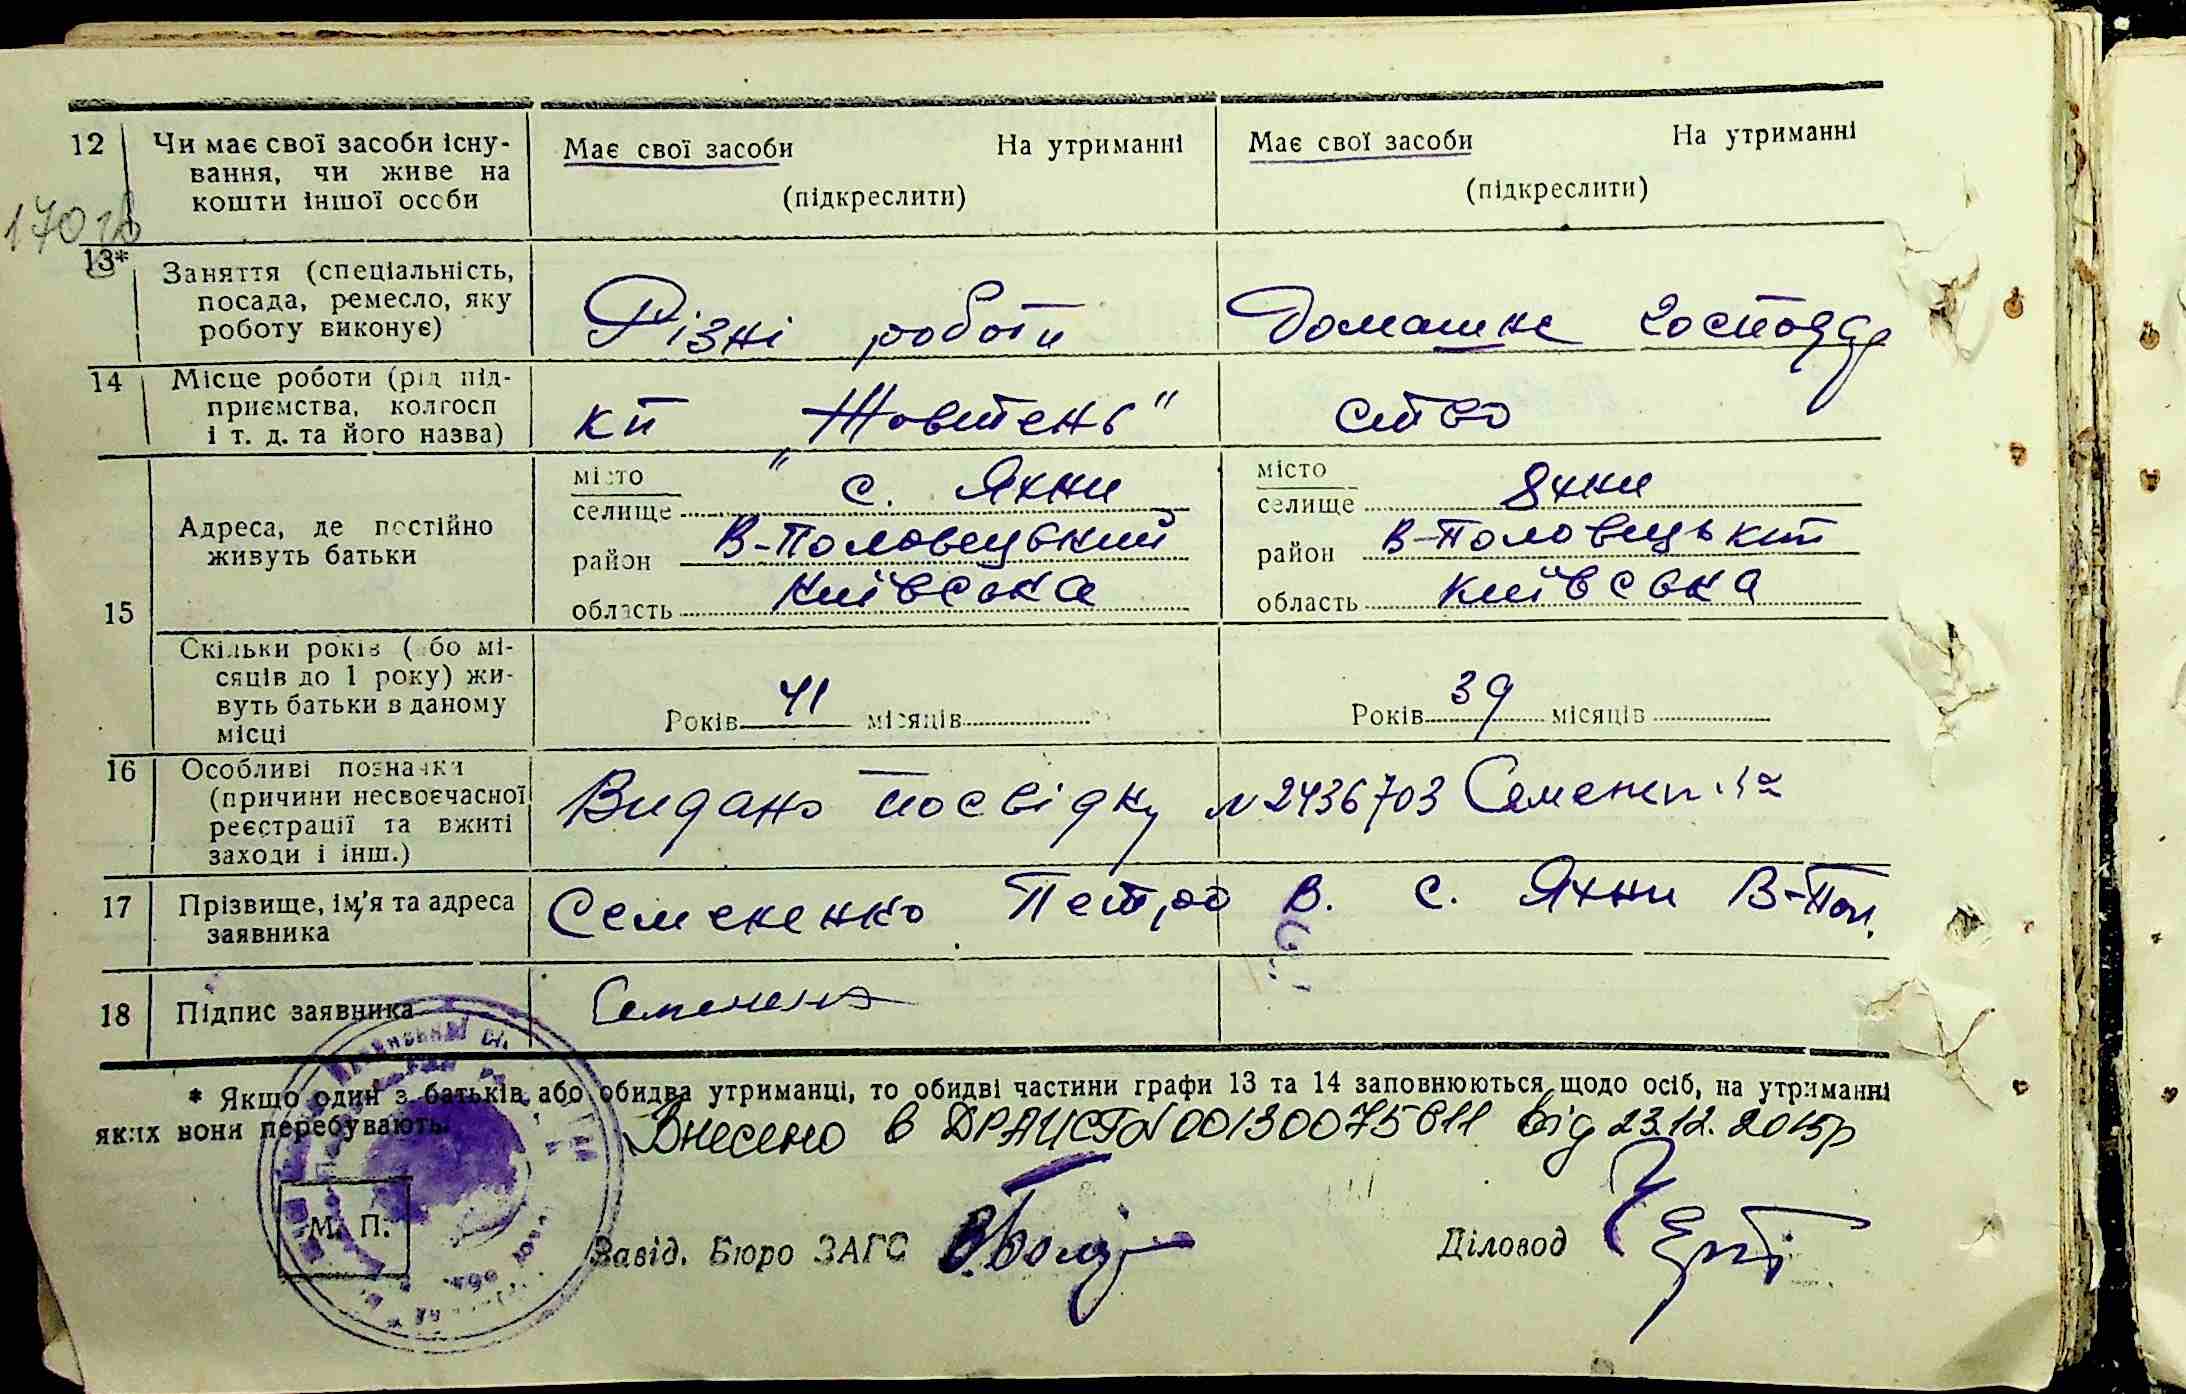 12 Чи має свої засоби існу-
вання, чи живе на
кошти іншої особи
Має свої засоби На утриманні
(підкреслити)
Має свої засоби На утриманні
(підкреслити)
13*
Заняття (спеціальність,
посада, ремесло, яку
роботу виконує)
Різні роботи
Домашнє господар
14 Місце роботи (рід під-
приємства, колгосп
і т. д. та його назва)
кп „Жовтень"
ство
15
Адреса, де постійно
живуть батьки
місто
селище с. Яхни
район В-Половецький
область Київська
місто
селище Яхни
район В-Половецький
область Київська
Скільки років (або мі-
сяців до 1 року) жи-
вуть батьки в даному
місці
Років 41 місяців
Років 39 місяців
16 Особливі позначки
(причини несвоєчасної
реєстрації та вжиті
заходи і інш.)
Видано посвідку № 2436703
17 Прізвище, ім'я та адреса
заявника
Семененко Петро В. с. Яхни В-Пол.
18 Підпис заявника
* Якщо один з батьків або обидва утриманці, то обидві частини графи 13 та 14 заповнюються щодо осіб, на утриманні
яких вони перебувають.
Внесено в ДРАЦСГ № 00130075611 від 23.12.2015р
М. П.
Завід. Бюро ЗАГС
Діловод